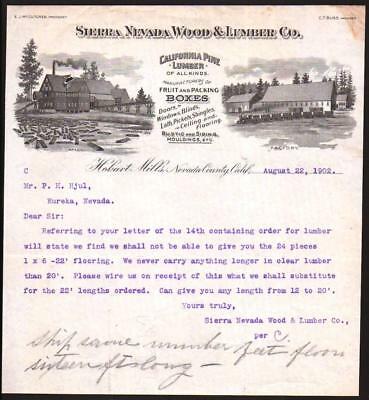 E. J. McCUTCHEN, PRESIDENT
C. T. BLISS, MANAGER
SIERRA NEVADA WOOD & LUMBER CO.
CALIFORNIA PINE
LUMBER
OF ALL KINDS.
MANUFACTURERS OF
FRUIT AND PACKING
BOXES
Doors,
Windows, Blinds,
Lath, Pickets, Shingles,
Ceiling and
Flooring,
RUSTIC AND SIDING,
MOULDINGS, ETC.
FACTORY
Hobart Mills, Nevada County, Calif. August 22, 1902.
C
Mr. P. H. Hjul,
Eureka, Nevada.
Dear Sir:
Referring to your letter of the 14th containing order for lumber
will state we find we shall not be able to give you the 24 pieces
1 x 6 -22' flooring. We never carry anything longer in clear lumber
than 20'. Please wire us on receipt of this what we shall substitute
for the 22' lengths ordered. Can give you any length from 12 to 20'.
Yours truly,
Sierra Nevada Wood & Lumber Co.,
per C.
Ship same number feet floor
sixteen ft long -